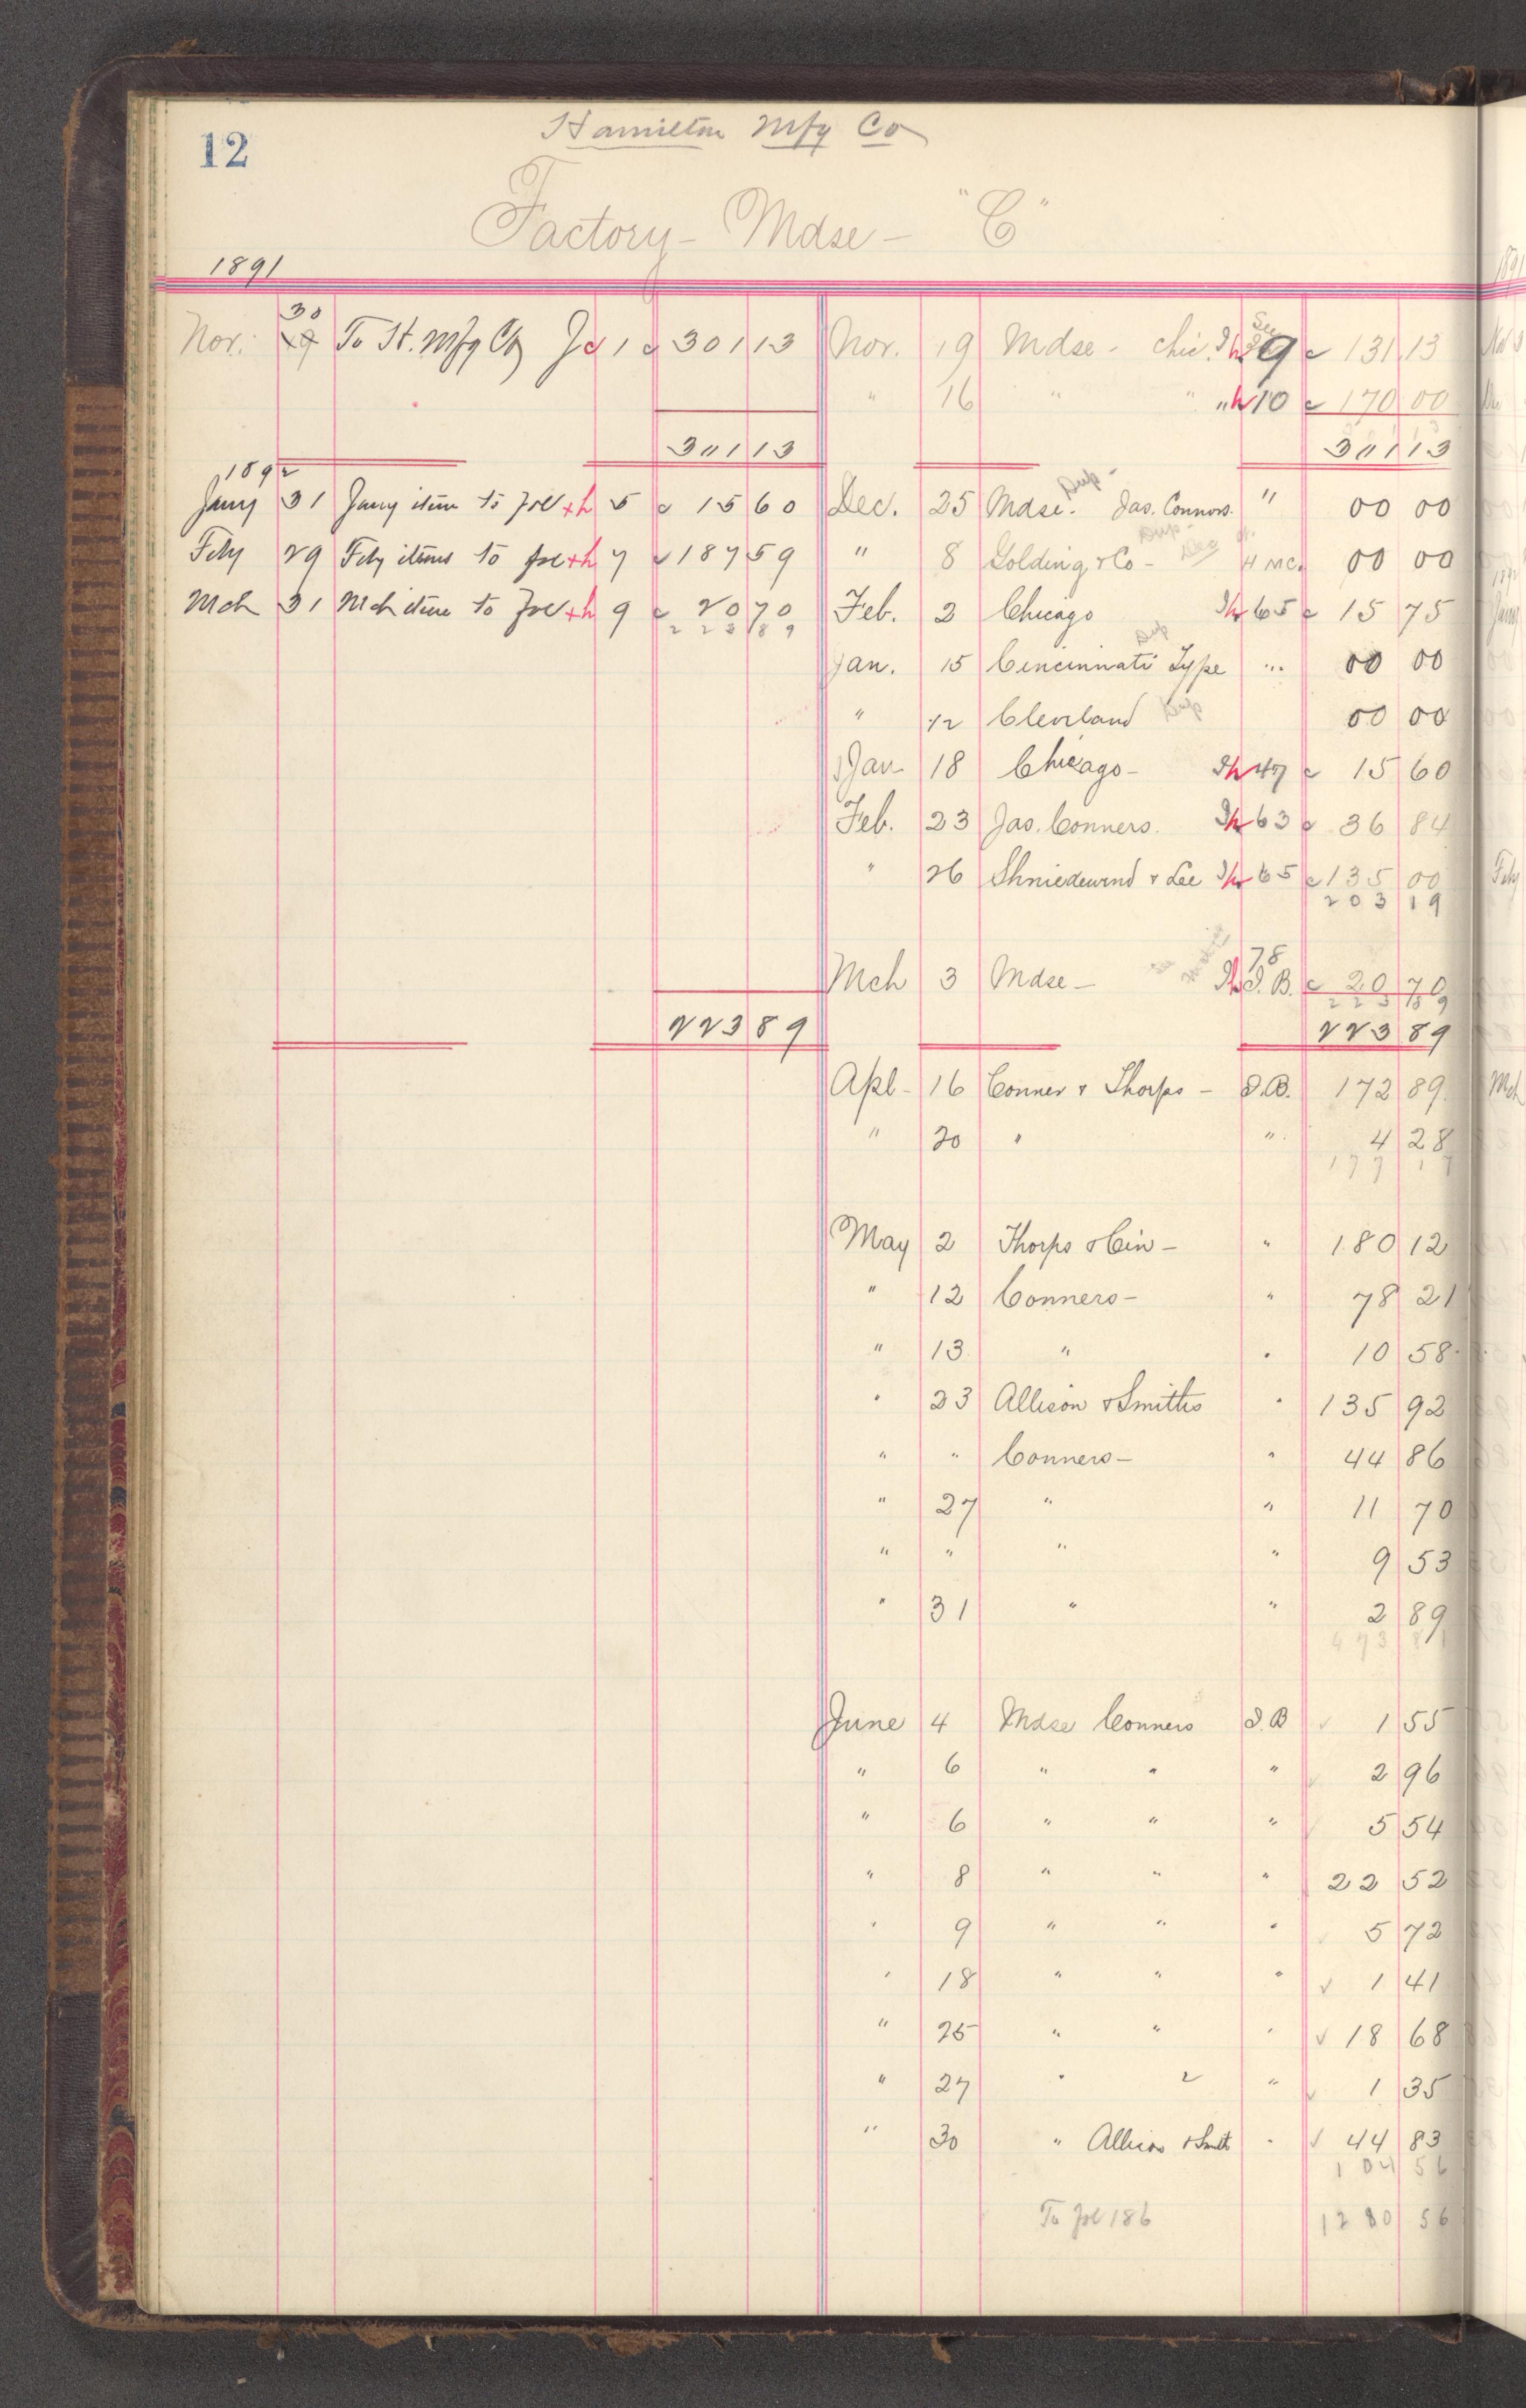 12
Hamilton Mfg Co
Factory - Mdse - "C"
1891
30
Nov. 19 To H. Mfg Co J 1 301 13 Nov. 19 Mdse - Chic. 9 131 13
" 16 " " " 10 170 00
301 13 301 13
1892
Jany 31 Jany item to Fol 5 15 60 Dec. 25 Mdse. Dup - Jas. Connors. " 00 00
Feby 29 Feby items to Fol 7 187 59 " 8 Golding & Co - Dup - H MC. 00 00
Mch 31 Mch item to Fol 9 20 70 Feb. 2 Chicago 65 15 75
223 89
Jan. 15 Cincinnati Type Dup " 00 00
" 12 Cleveland Dup 00 00
Jan 18 Chicago - 47 15 60
Feb. 23 Jas. Conners. 63 36 84
" 26 Shniedewend & Lee 65 135 00
203 19
78
Mch 3 Mdse - I.B. 20 70
223 89
223 89 223 89
Apl - 16 Conner & Thorps - I.B. 172 89
" 20 " " 4 28
177 17
May 2 Thorps & Cin - " 180 12
" 12 Conners - " 78 21
" 13 " " 10 58
" 23 Allison & Smiths " 135 92
" " Conners - " 44 86
" 27 " " 11 70
" " " " 9 53
" 31 " " 2 89
473 81
June 4 Mdse Conners I.B ✓ 1 55
" 6 " " " 2 96
" 6 " " " 5 54
" 8 " " " 22 52
" 9 " " " 5 72
" 18 " " " ✓ 1 41
" 25 " " " ✓ 18 68
" 27 " " " ✓ 1 35
" 30 " Allison & Smith " ✓ 44 83
104 56
To Fol 186 1280 56